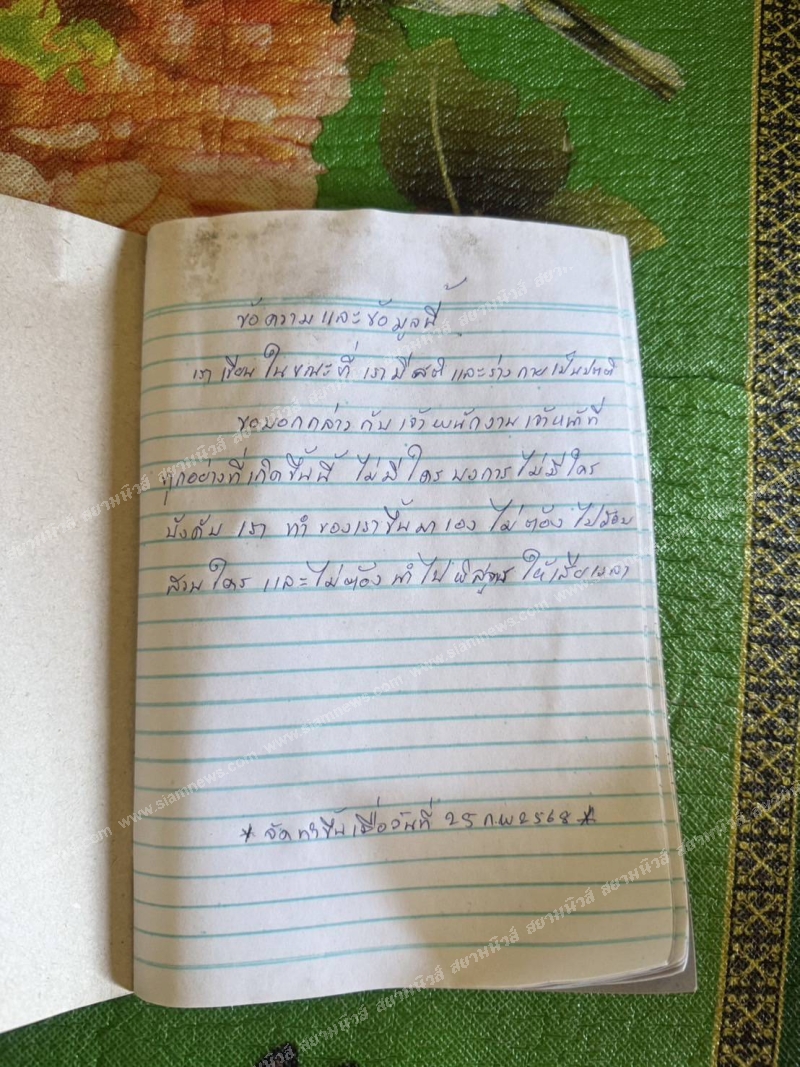 ข้อความและข้อมูลนี้
เราเขียนในขณะที่ เรามีสติ และร่างกายเป็นปกติ
ขอบอกกล่าวกับเจ้าพนักงานเจ้าหน้าที่
ทุกอย่างที่เกิดขึ้นนี้ ไม่มีใครบงการ ไม่มีใคร
บังคับ เรา ทำของเราขึ้นมาเอง ไม่ต้องไปสอบ
สวนใคร และไม่ต้อง นำไปพิสูจน์ ให้เสียเวลา
* จัดทำขึ้นเมื่อวันที่ 25 ก.พ 2568 *
www.siamnews.com สยามนิวส์